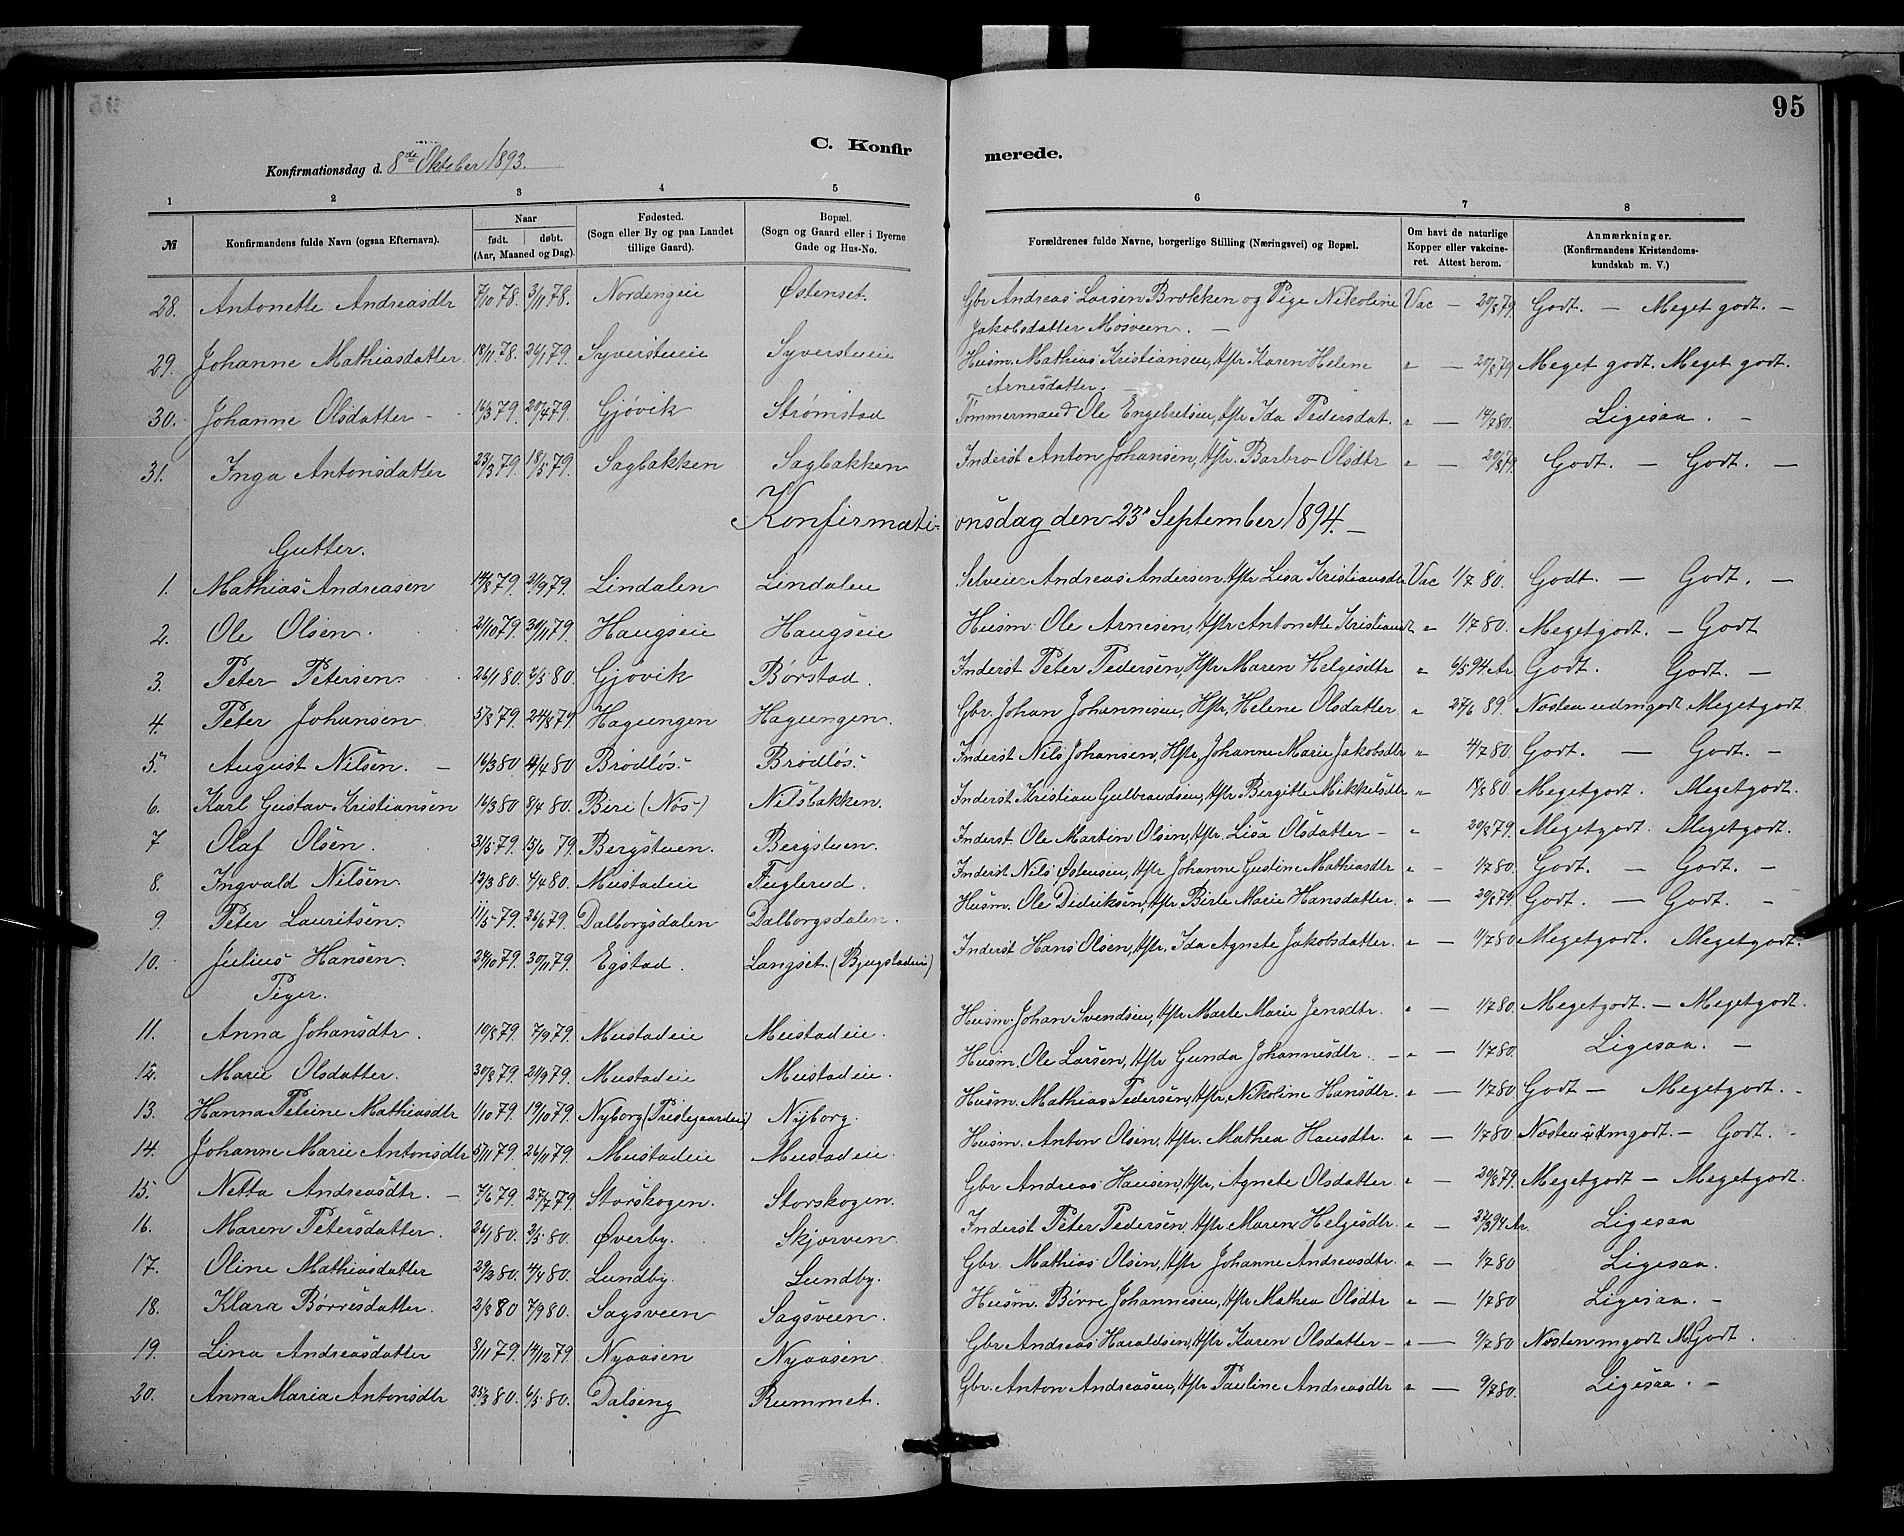 95
C. Konfirmerede.
Konfirmationsdag d. 8de Oktober 1893.
1 2 3 4 5 6 7 8
№ Konfirmandens fulde Navn (ogsaa Efternavn). Naar født. døbt. (Aar, Maaned og Dag). Fødested. (Sogn eller By og paa Landet tillige Gaard). Bopæl. (Sogn og Gaard eller i Byerne Gade og Hus-No. Forældrenes fulde Navne, borgerlige Stilling (Næringsvei) og Bopæl. Om havt de naturlige Kopper eller vakcineret. Attest herom. Anmærkninger. (Konfirmandens Kristendomskundskab m. V.)
28. Antonette Andreasdtr 7/10 78. 3/11 78. Nordengeie Østenset. Gbr Andreas Larsen Brækken og Pige Nikoline Vac — 20/8 79. Godt. — Meget godt. —
Jakobsdatter Mosveen. —
29. Johanne Mathiasdatter. 18/11 78. 26/1 79. Syverstueie Syverstueie Husm. Mathias Kristiansen, Hstr Karen Helene " — 20/8 79 Meget godt. Meget godt.
Arnesdatter. —
30. Johanne Olsdatter - 16/3 79. 20/4 79. Gjøvik Strømstad Tømmermand Ole Engebretsen, Hstr Ida Pedersdat. " — 14/7 80. Ligesaa. —
31. Inga Antonsdatter 23/3 79. 18/5 79. Sagbakken Sagbakken Inderst Anton Johansen, Hstr. Barbro Olsdtr " — 20/8 79. Godt. — Godt. —
Konfirmationsdag den 23' September 1894. —
Gutter.
1. Mathias Andreasen 14/8 79. 21/9 79. Lindalen Lindalen Selveier Andreas Andersen, Hstr Lisa Kristiansdtr Vac 1/7 80. Godt. — Godt. —
2. Ole Olsen. 21/10 79. 30/11 79. Haugseie Haugseie Husm. Ole Arnesen, Hstr Antonette Kristiansdt " 1/7 80. Megetgodt. — Godt
3. Peter Petersen. 26/1 80 2/5 80. Gjøvik Børstad. Inderst Peter Pedersen, Hstr Maren Helgesdtr " 6/5 94 Ar Godt. Godt. —
4. Peter Johansen 5/8 79. 24/8 79 Hagungen Hagungen. Gbr. Johan Johannesen, Hstr, Helene Olsdatter " 27/6 89. Næsten udmgodt Megetgodt
5. August Nilsen. — 16/3 80 4/4 80 Brødløs. Brødløs. Inderst Nils Johansen, Hstr, Johanne Marie Jakobsdtr " 4/7 80. Godt. — Godt. —
6. Karl Gustav Kristiansen 16/3 80 8/4 80. Biri (Nøs) Nilsbakken. Inderst Kristian Gulbrandsen, Hstr Bergitte Mikkelsdtr " 18/8 80. Megetgodt. Megetgodt.
7 Olaf Olsen. 31/5 79. 15/6 79. Bergstuen. Bergstuen. Inderst Ole Martin Olsen, Hstr. Lisa Olsdatter — " 20/8 79. Megetgodt. Megetgodt.
8. Ingvald Nilsen. 13/3 80. 4/4 80. Mustadeie Fuglerud. Inderst Nils Østensen, Hstr Johanne Gustine Mathiasdtr " — 1/7 80. Godt. — Godt. —
9. Peter Lauritsen. 11/5 79. 26/6 79. Dalborgsdalen Dalborgsdalen. Husm. Ole Dideriksen, Hstr Birte Marie Hansdatter. " — 20/8 79. Godt. — Godt. —
10. Julius Hansen. 24/10 79. 30/11 79. Egstad. Langset. (Bjugstadeie) Inderst Hans Olsen, Hstr. Ida Agnete Jakobsdatter. " — 11/7 80 Megetgodt. Megetgodt.
Piger.
11. Anna Johansdtr. 10/8 79. 7/9 79. Mustadeie Mustadeie. Husm. Johan Svendsen, Hstr Marte Marie Jensdtr. " — 1/7 80. Megetgodt. — Megetgodt.
12. Marie Olsdatter. 30/8 79. 21/9 79. Mustadeie Mustadeie. Husm. Ole Larsen, Hstr Gunda Johannesdtr. — " — 1/7 80. Ligesaa. —
13. Hanna Petrine Mathiasdtr 1/10 79. 19/10 79. Nyborg (Præstegaardeie) Nyborg. Husm. Mathias Pedersen, Hstr, Nikoline Hansdtr. " — 1/7 80. Godt — Megetgodt. —
14. Johanne Marie Antonsdtr 5/11 79. 26/11 79. Mustadeie Mustadeie. Husm. Anton Olsen, Hstr. Mathea Hansdtr. " — 1/7 80 Næsten udmgodt. — Godt. —
15. Netta Andreasdtr. — 7/6 79 27/7 79 Storskogen. Storskogen. Gbr Andreas Hansen, Hstr, Agnete Olsdatter — " — 20/8 79. Megetgodt — Megetgodt.
16. Maren Petersdatter. 26/1 80. 2/5 80. Øverby. Skjørven. Inderst Peter Pedersen Hstr Maren Helgesdtr. " — 27/3 94 Ar. Ligesaa
17. Oline Mathiasdatter 29/2 80. 4/4 80. Lundby. Lundby. Gbr. Mathias Olsen, Hstr Johanne Andreasdtr. " — 1/7 80 Ligesaa.
18. Klara Børresdatter. 2/8 80 7/9 80. Sagsveen Sagsveen. Husm. Børre Johannesen, Hstr Mathea Olsdtr " — 1/7 80 Ligesaa. —
19. Lina Andreasdatter 3/11 79. 14/12 79. Nyaasen Nyaasen. Gbr Andreas Haraldsen, Hstr Karen Olsdatter — " — 9/7 80 Næsten mgodt MGodt.
20. Anna Maria Antonsdtr 25/3 80. 6/5 80. Dalseng Rummet. Gbr. Anton Andreasen, Hstr Pauline Andreasdtr " — 9/7 80. Ligesaa. —